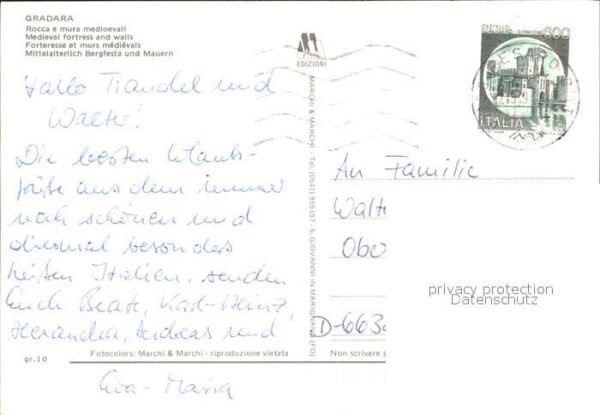 GRADARA
Rocca e mura medioevali
Medieval fortress and walls
Forteresse et murs médiévals
Mittelalterlich Bergfeste und Mauern
EDIZIONI
CASTELLO
600
ITALIA
Hallo Traudel und
Walter!
Die besten Urlaubs-
grüße aus dem immer
noch schönen und
diesmal besonders
heißen Italien, senden
Euch Beate, Karl-Heinz,
Alexandra, Andreas und
Eva-Maria
MARCHI & MARCHI - Tel. (0541) 955157 - S. GIOVANNI IN MARIGNANO (FO)
An Familie
Walt
Obe
D-663
privacy protection
Datenschutz
gr.10
Fotocolors: Marchi & Marchi - riproduzione vietata
Non scrivere s